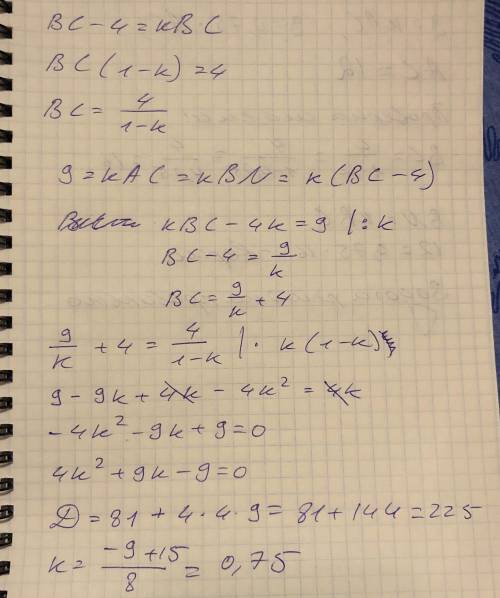 BC - 4 = kBC
BC (1-k) = 4
BC = 4/(1-k)
9 = kAC = kBN = k(BC-4)
kBC - 4k = 9 | : k
BC - 4 = 9/k
BC = 9/k + 4
9/k + 4 = 4/(1-k) | · k(1-k)
9 - 9k + 4k - 4k² = 4k
-4k² - 9k + 9 = 0
4k² + 9k - 9 = 0
Д = 81 + 4·4·9 = 81 + 144 = 225
k = (-9+15)/8 = 0,75